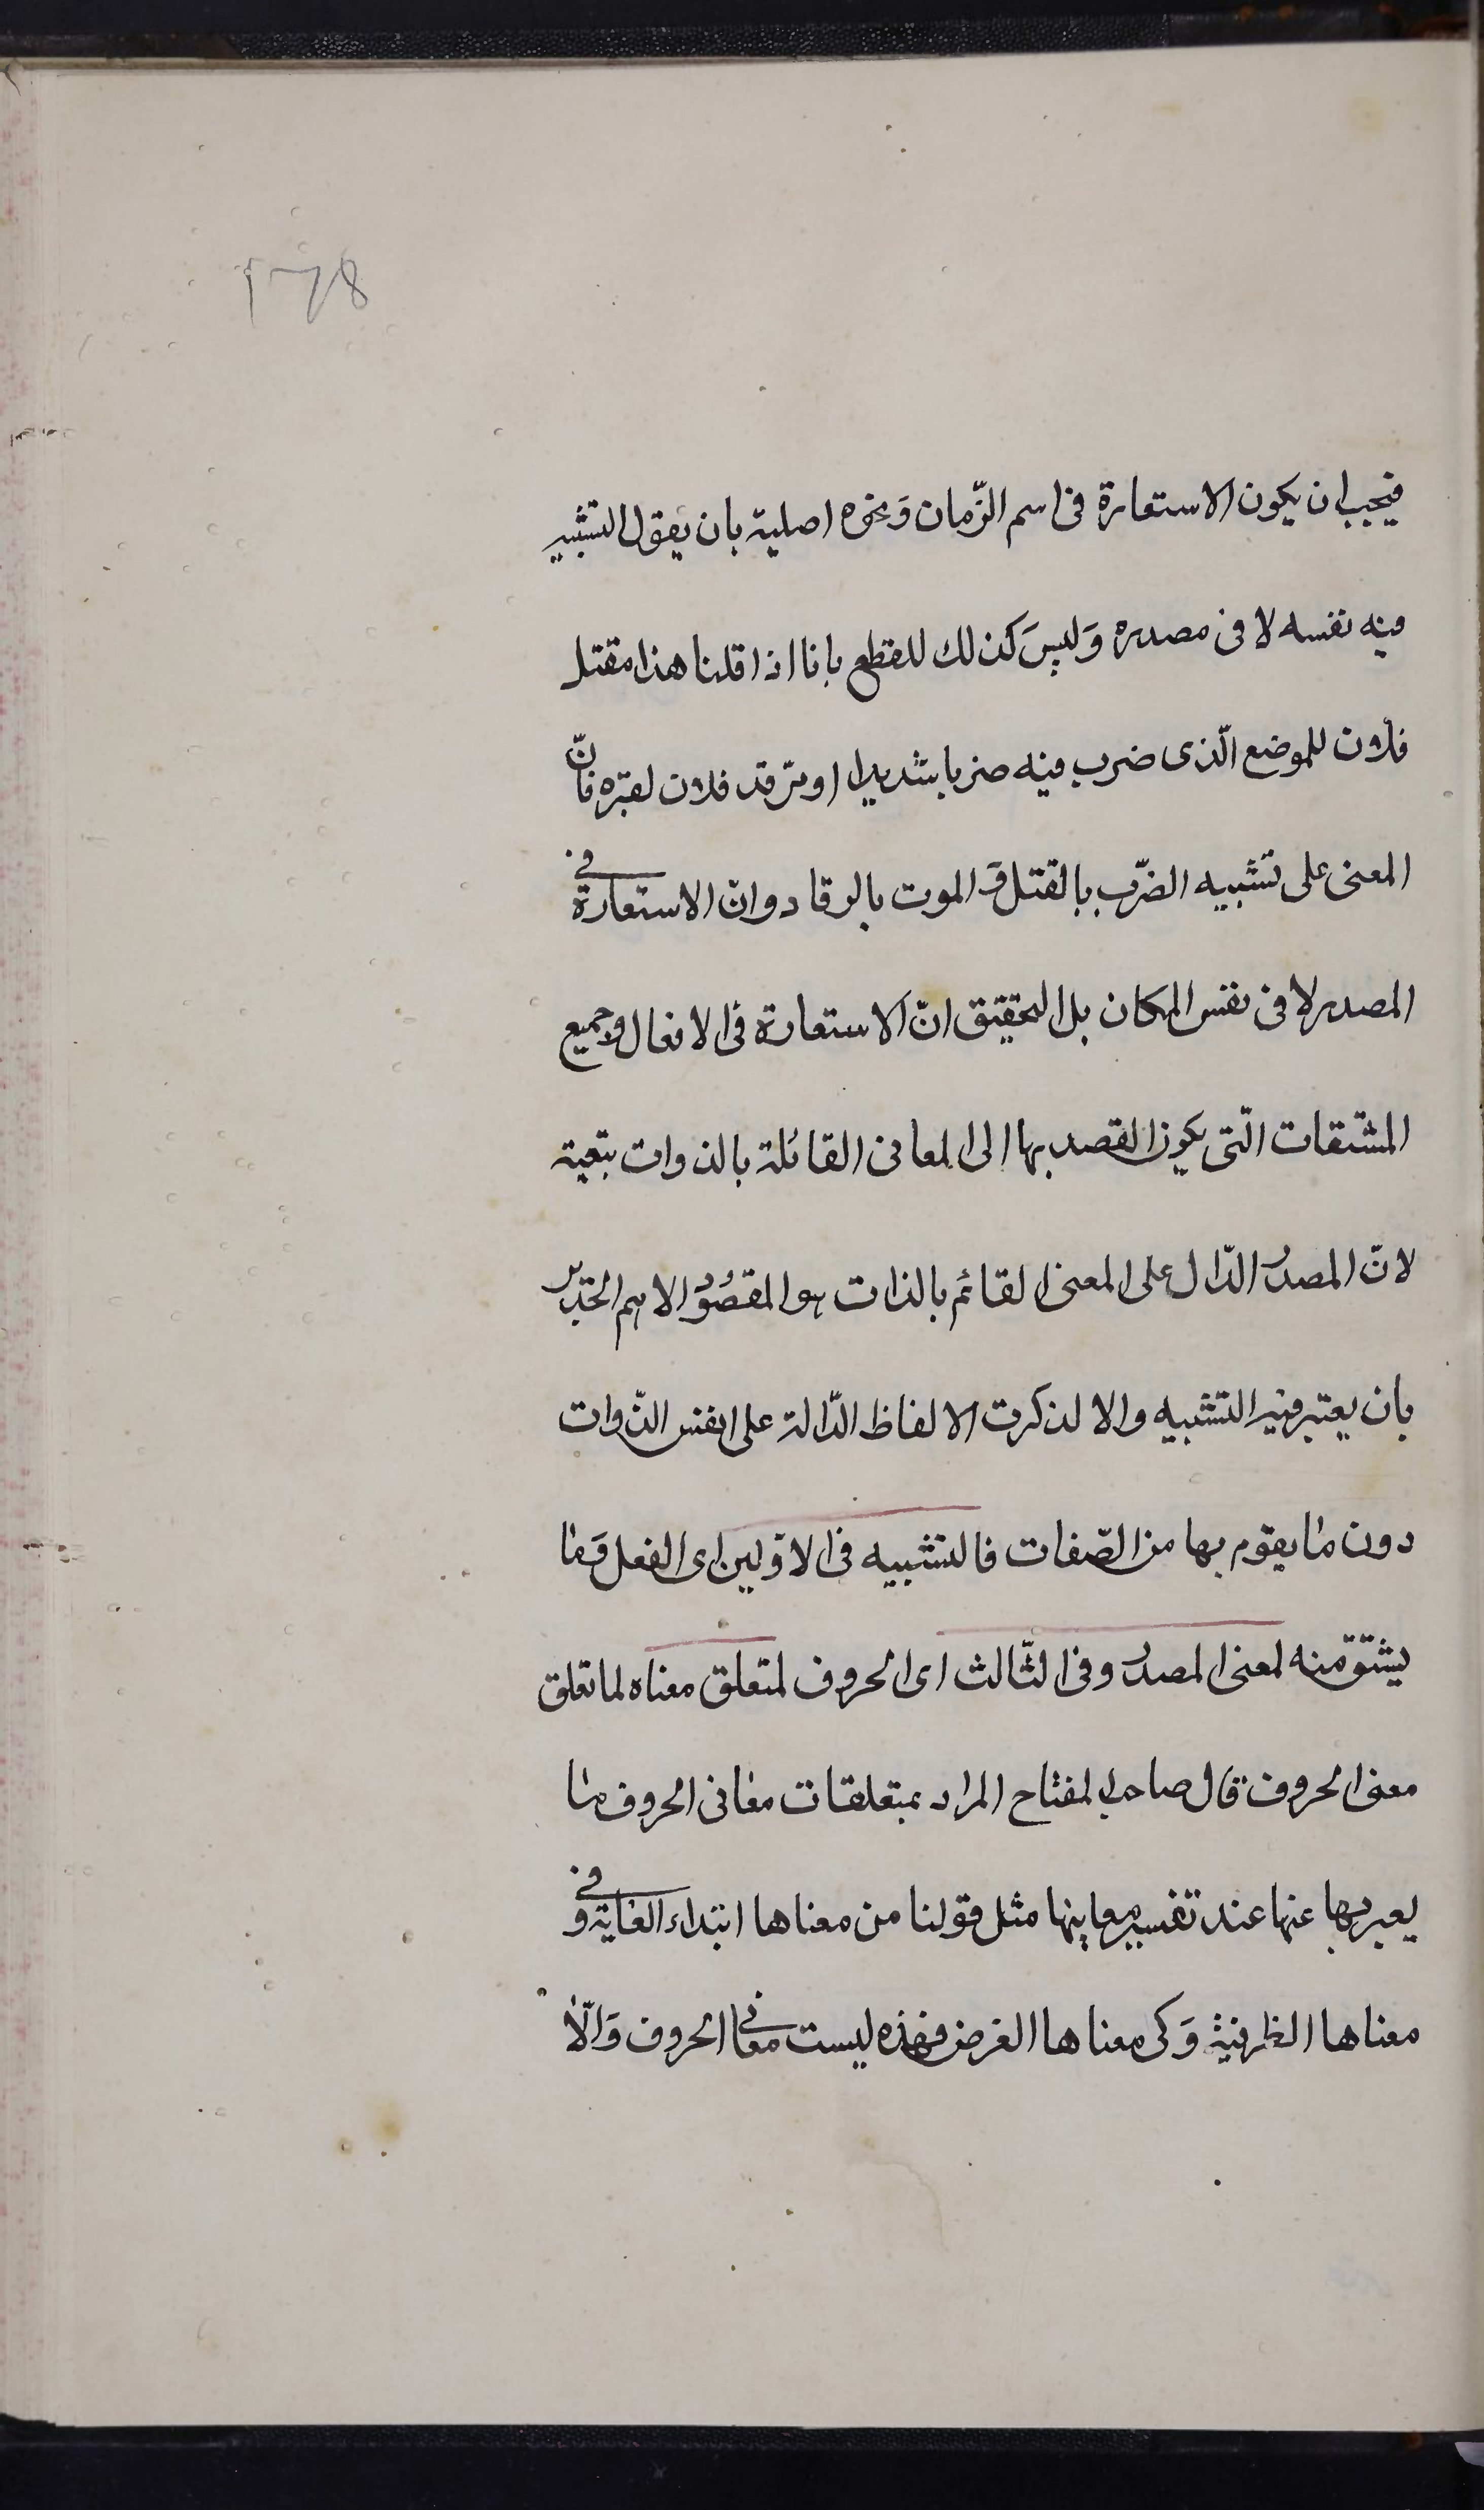 178
فيجب ان يكون الاستعارة فى اسم الزّمان وَنحوه اصلية بان يقول التشبيه
فيه نفسه لا فى مصدره وَليسَ كذلك للقطع بانا اذا قلنا هذا مقتل
فلان للموضع الّذى ضرب فيه ضربا شديدا او مرقد فلان لقبره فانّ
المعنى على تشبيه الضّرب بالقتل وَ الموت بالرقاد وانّ الاستعارة فى
المصدر لا فى نفس المكان بل التحقيق انّ الاستعارة فى الافعال وجميع
المشتقات الّتى يكون القصد بها الى المعانى القائمة بالذوات تبعية
لانّ المصدر الدّال على المعنى القائم بالذات هو المقصُوُد الاهم الجدير
بان يعتبر فيه التشبيه والا لذكرت الالفاظ الدّالة على نفس الذّوات
دون ما يقوم بها من الصّفات فالتشبيه فى الاوّلين اى الفعل وَما
يشتقّ منه لمعنى المصدر وفى الثّالث اى الحروف لمتعلق معناه لما تعلق
معنى الحروف قال صاحب المفتاح المراد بمتعلقات معانى الحروف ما
يعبر بها عنها عند تفسير معاينها مثل قولنا من معناها ابتداء الغاية وفى
معناها الظرفية وَكى معناها الغرض فهذه ليست معانى الحروف وَالّا